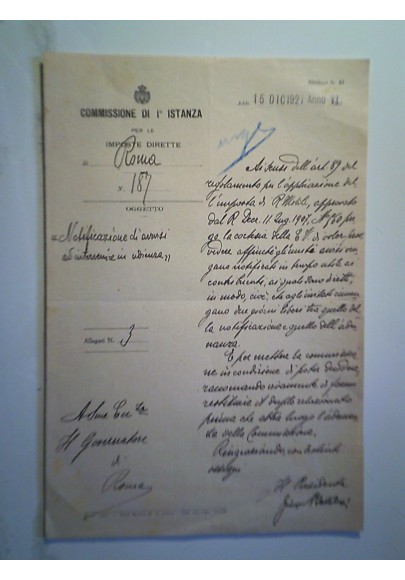 COMMISSIONE DI Iª ISTANZA
PER LE
IMPOSTE DIRETTE
di Roma
N. 187
OGGETTO
"Notificazione di avvisi
ad intervenire in udienza"
Allegati N. 3
A Sua Ecc.za
Il Governatore
di
Roma
Modulo N.
15 DIC 1927 Anno VI
Ai sensi dell'art. 89 del
regolamento per l'applicazione del
l'imposta di R. Mobile, approvato
dal R. Decr. 11 Lug. 1907, N. 560 pre
go la cortesia della E. V. di voler
affinché gli avvisi
gano notificati in tempo utile ai
contribuenti, ai quali sono diretti,
in modo, cioè, che agli invitati rimang
gano due giorni liberi tra quello del
la notificazione e quello dell'udie
nza.
E per mettere la commissio
ne in condizione di poter decidere,
raccomando vivamente di farmi
restituire il duplo relazionato
prima che abbia luogo l'udienza
della Commissione.
Ringraziando, con distinti
ossequi
Il Presidente